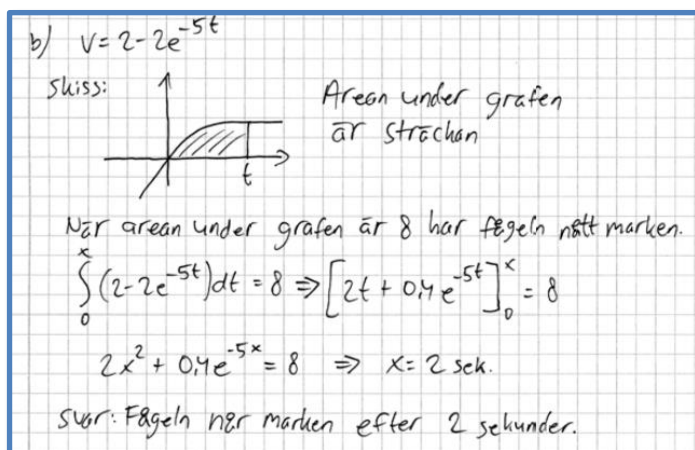 b) v = 2-2e^{-5t}
Skiss:
Arean under grafen
är sträckan
t
När arean under grafen är 8 har fågeln nått marken.
∫_0^x (2-2e^{-5t})dt = 8 ⇒ [2t + 0,4e^{-5t}]_0^x = 8
2x^2 + 0,4e^{-5x} = 8 ⇒ x = 2 sek.
Svar: Fågeln når marken efter 2 sekunder.